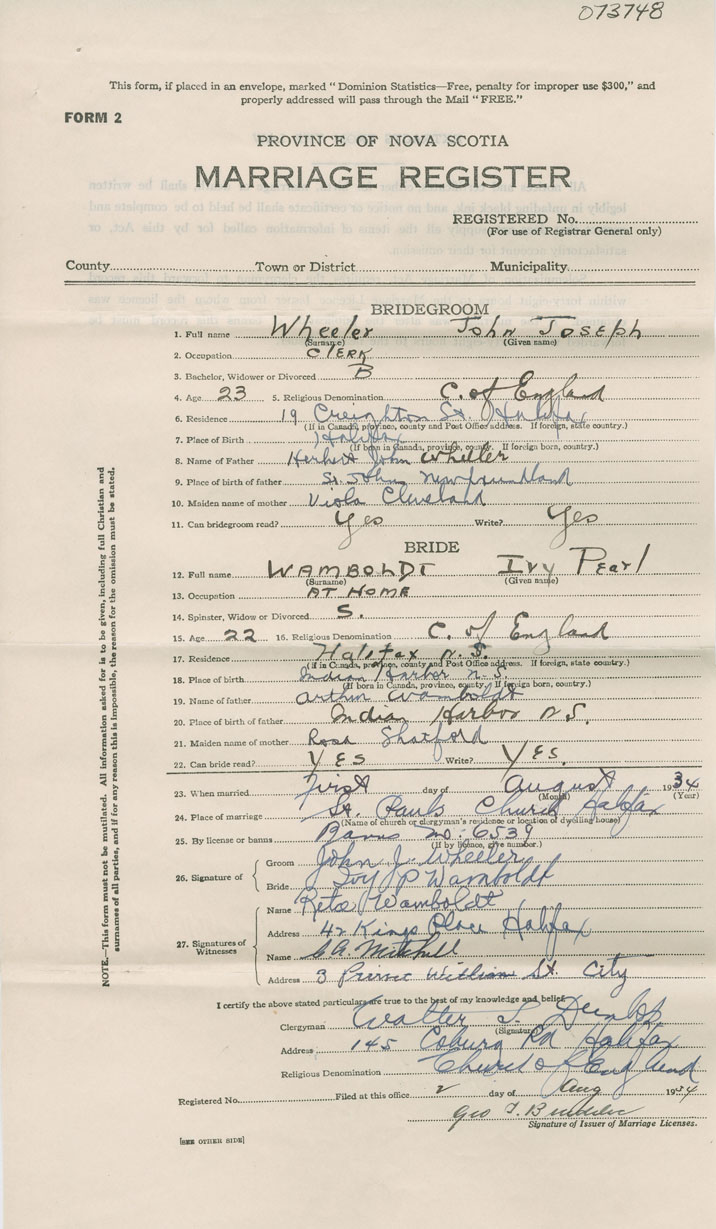 073748
This form, if placed in an envelope, marked "Dominion Statistics—Free, penalty for improper use $300," and
properly addressed will pass through the Mail "FREE."
FORM 2
PROVINCE OF NOVA SCOTIA
MARRIAGE REGISTER
REGISTERED No.
(For use of Registrar General only)
County Town or District Municipality
BRIDEGROOM
1. Full name Wheeler John Joseph
(Surname) (Given name)
2. Occupation CLERK
3. Bachelor, Widower or Divorced B
4. Age 23 5. Religious Denomination C. of England
6. Residence 19 Creighton St. Halifax
(If in Canada, province, county and Post Office address. If foreign, state country.)
7. Place of Birth Halifax
(If born in Canada, province, county. If foreign born, country.)
8. Name of Father Herbert John Wheeler
9. Place of birth of father St. Johns Newfoundland
10. Maiden name of mother Viola Cleveland
11. Can bridegroom read? Yes Write? Yes
BRIDE
12. Full name WAMBOLDT Ivy Pearl
(Surname) (Given name)
13. Occupation AT HOME
14. Spinster, Widow or Divorced S.
15. Age 22 16. Religious Denomination C. of England
17. Residence Halifax N.S.
(If in Canada, province, county and Post Office address. If foreign, state country.)
18. Place of birth Indian Harbor N.S.
(If born in Canada, province, county. If foreign born, country.)
19. Name of father Arthur Wamboldt
20. Place of birth of father Indian Harbor N.S.
21. Maiden name of mother Rosa Shatford
22. Can bride read? YES Write? YES.
23. When married First day of August 1934
(Month) (Year)
24. Place of marriage St. Pauls Church Halifax
(Name of church or clergyman's residence or location of dwelling house)
25. By license or banns Banns No: 6539
(If by licence, give number.)
26. Signature of Groom John J. Wheeler
Bride Ivy P Wamboldt
27. Signatures of Witnesses
Name Reta Wamboldt
Address 42 Kings Place Halifax
Name Mitchell
Address 3 Prince William St. City
I certify the above stated particulars are true to the best of my knowledge and belief,
Clergyman Walter S. Dunlop
(Signature)
Address 145 Coburg Rd Halifax
Religious Denomination Church of England
Registered No. Filed at this office 2 day of Aug 1934
Geo
Signature of Issuer of Marriage Licenses.
[SEE OTHER SIDE]
NOTE.—This form must not be mutilated. All information asked for is to be given, including full Christian and
surnames of all parties, and if for any reason this is impossible, the reason for the omission must be stated.